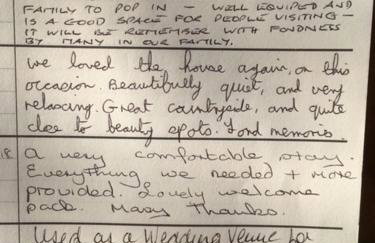 FAMILY TO POP IN - WELL EQUIPED AND
IS A GOOD SPACE FOR PEOPLE VISITING -
IT WILL BE REMEMBER WITH FONDNESS
BY MANY IN OUR FAMILY.
We loved the house again, on this
occasion. Beautifully quiet, and very
relaxing. Great countryside, and quite
close to beauty spots. Fond memoris.
18 A very comfortable stay.
Everything we needed + more
provided. Lovely welcome
pack. Many Thanks.
Used as a Wedding Venue for